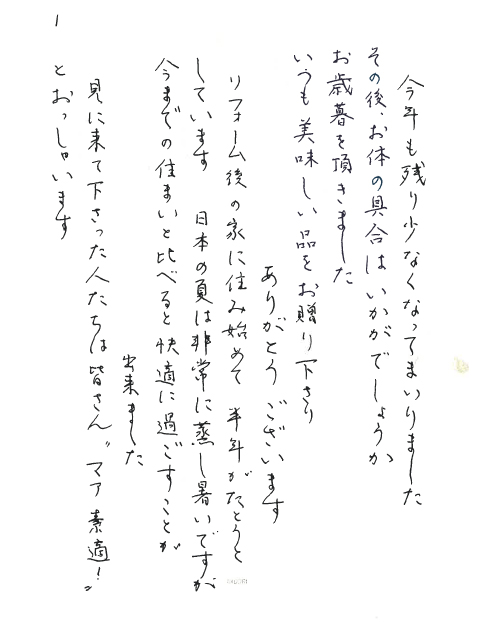 今年も残り少なくなってまいりました
その後、お体の具合はいかがでしょうか
お歳暮を頂きました
いつも美味しい品をお贈り下さり
ありがとうございます
リフォーム後の家に住み始めて 半年がたとうと
しています 日本の夏は非常に蒸し暑いですが
今までの住まいと比べると快適に過ごすことが
出来ました
見に来て下さった人たちは皆さん〝マア 素適!〟
とおっしゃいます
1